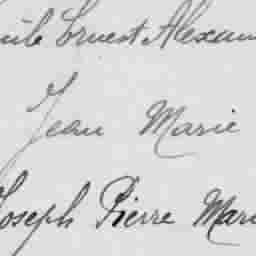 Ernest Alexan
Jean Marie
Joseph Pierre Mari